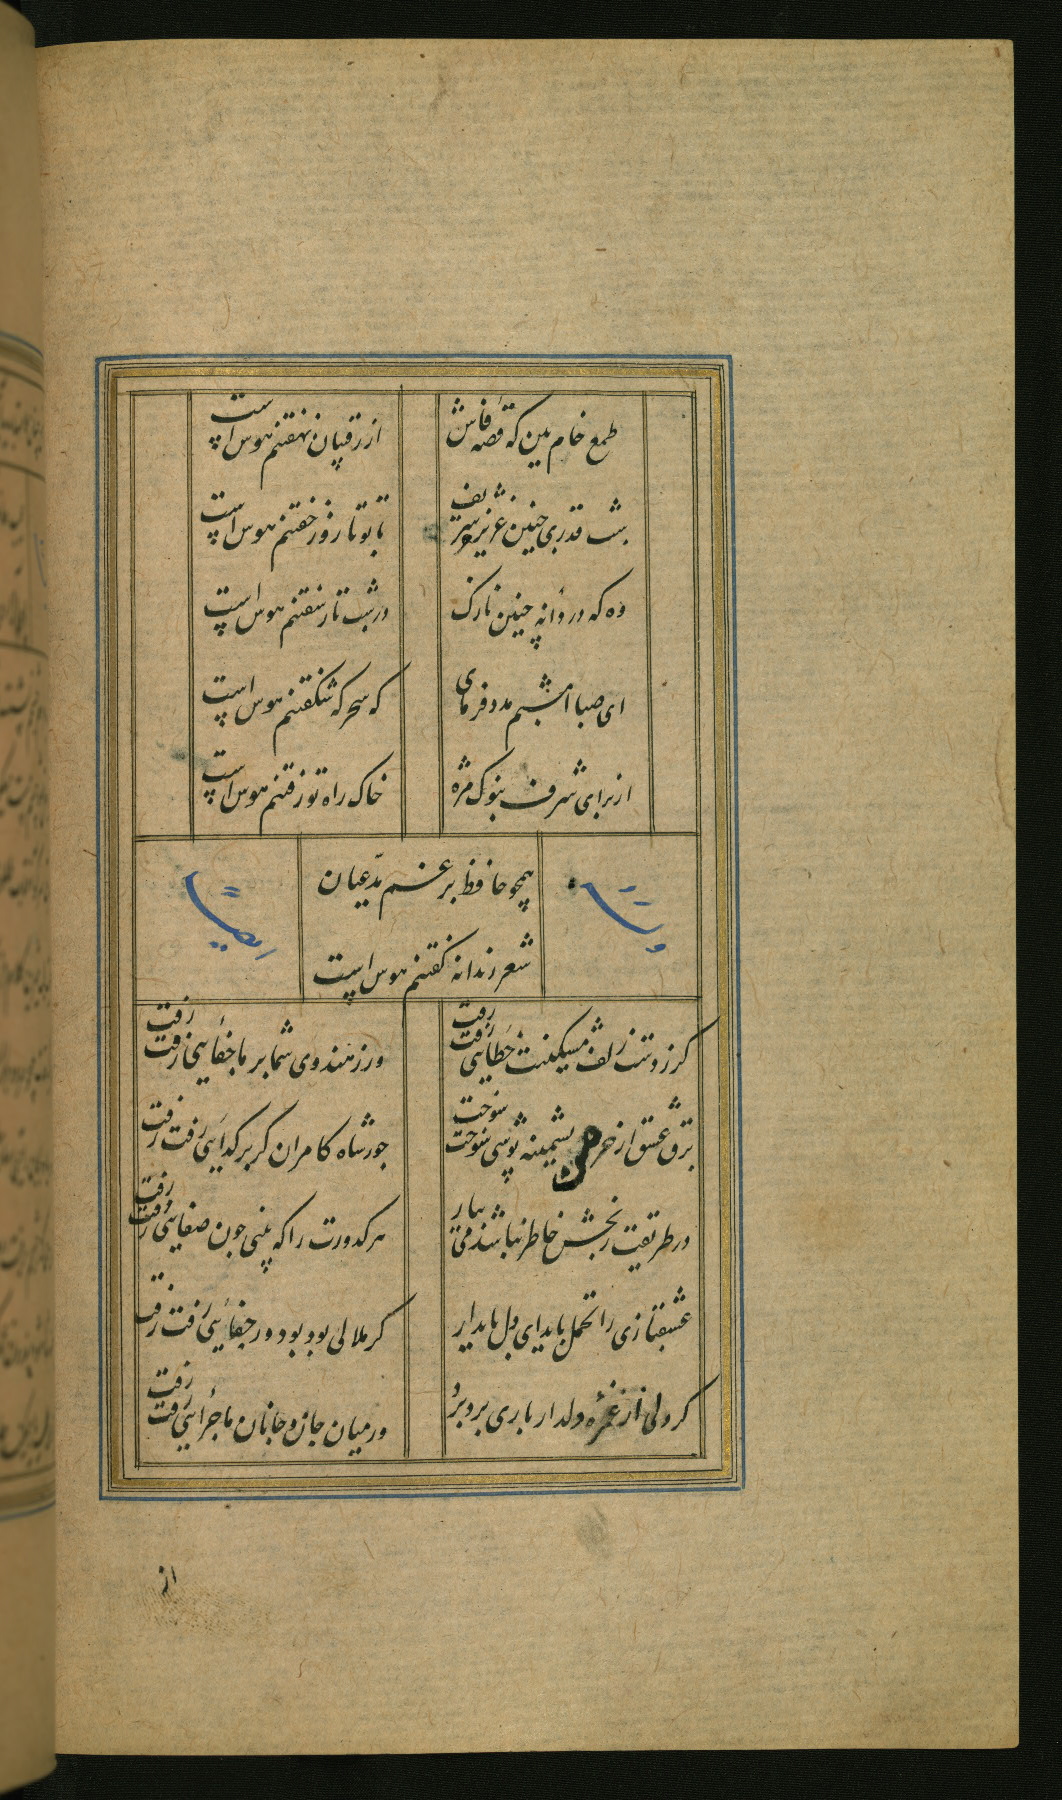 طمع خام بین که قصه فاش
از رقیبان نهفتنم هوس است
شب قدری چنین عزیز شریف
با تو تا روز خفتنم هوس است
وه که دردانه چنین نازک
در شب تار سفتنم هوس است
ای صبا امشبم مدد فرمای
که سحرکه شکفتنم هوس است
از برای شرف بنوک مژه
خاک راه تو رفتنم هوس است
همچو حافظ برغم مدعیان
شعر رندانه کفتنم هوس است
وله ایضا
کر ز دست زلف مشکینت خطایی رفت رفت
ور ز هندوی شما بر ما جفایی رفت رفت
برق عشق ار خرمن پشمینه پوشی سوخت سوخت
جور شاه کامران کر بر کدایی رفت رفت
در طریقت رنجش خاطر نباشد می بیار
هر کدورت را که بینی چون صفایی رفت رفت
عشقبازی را تحمل باید ای دل پایدار
کر ملالی بود بود ور جفایی رفت رفت
کر دلی از غمزه دلدار باری برد برد
ور میان جان و جانان ماجرایی رفت رفت
از